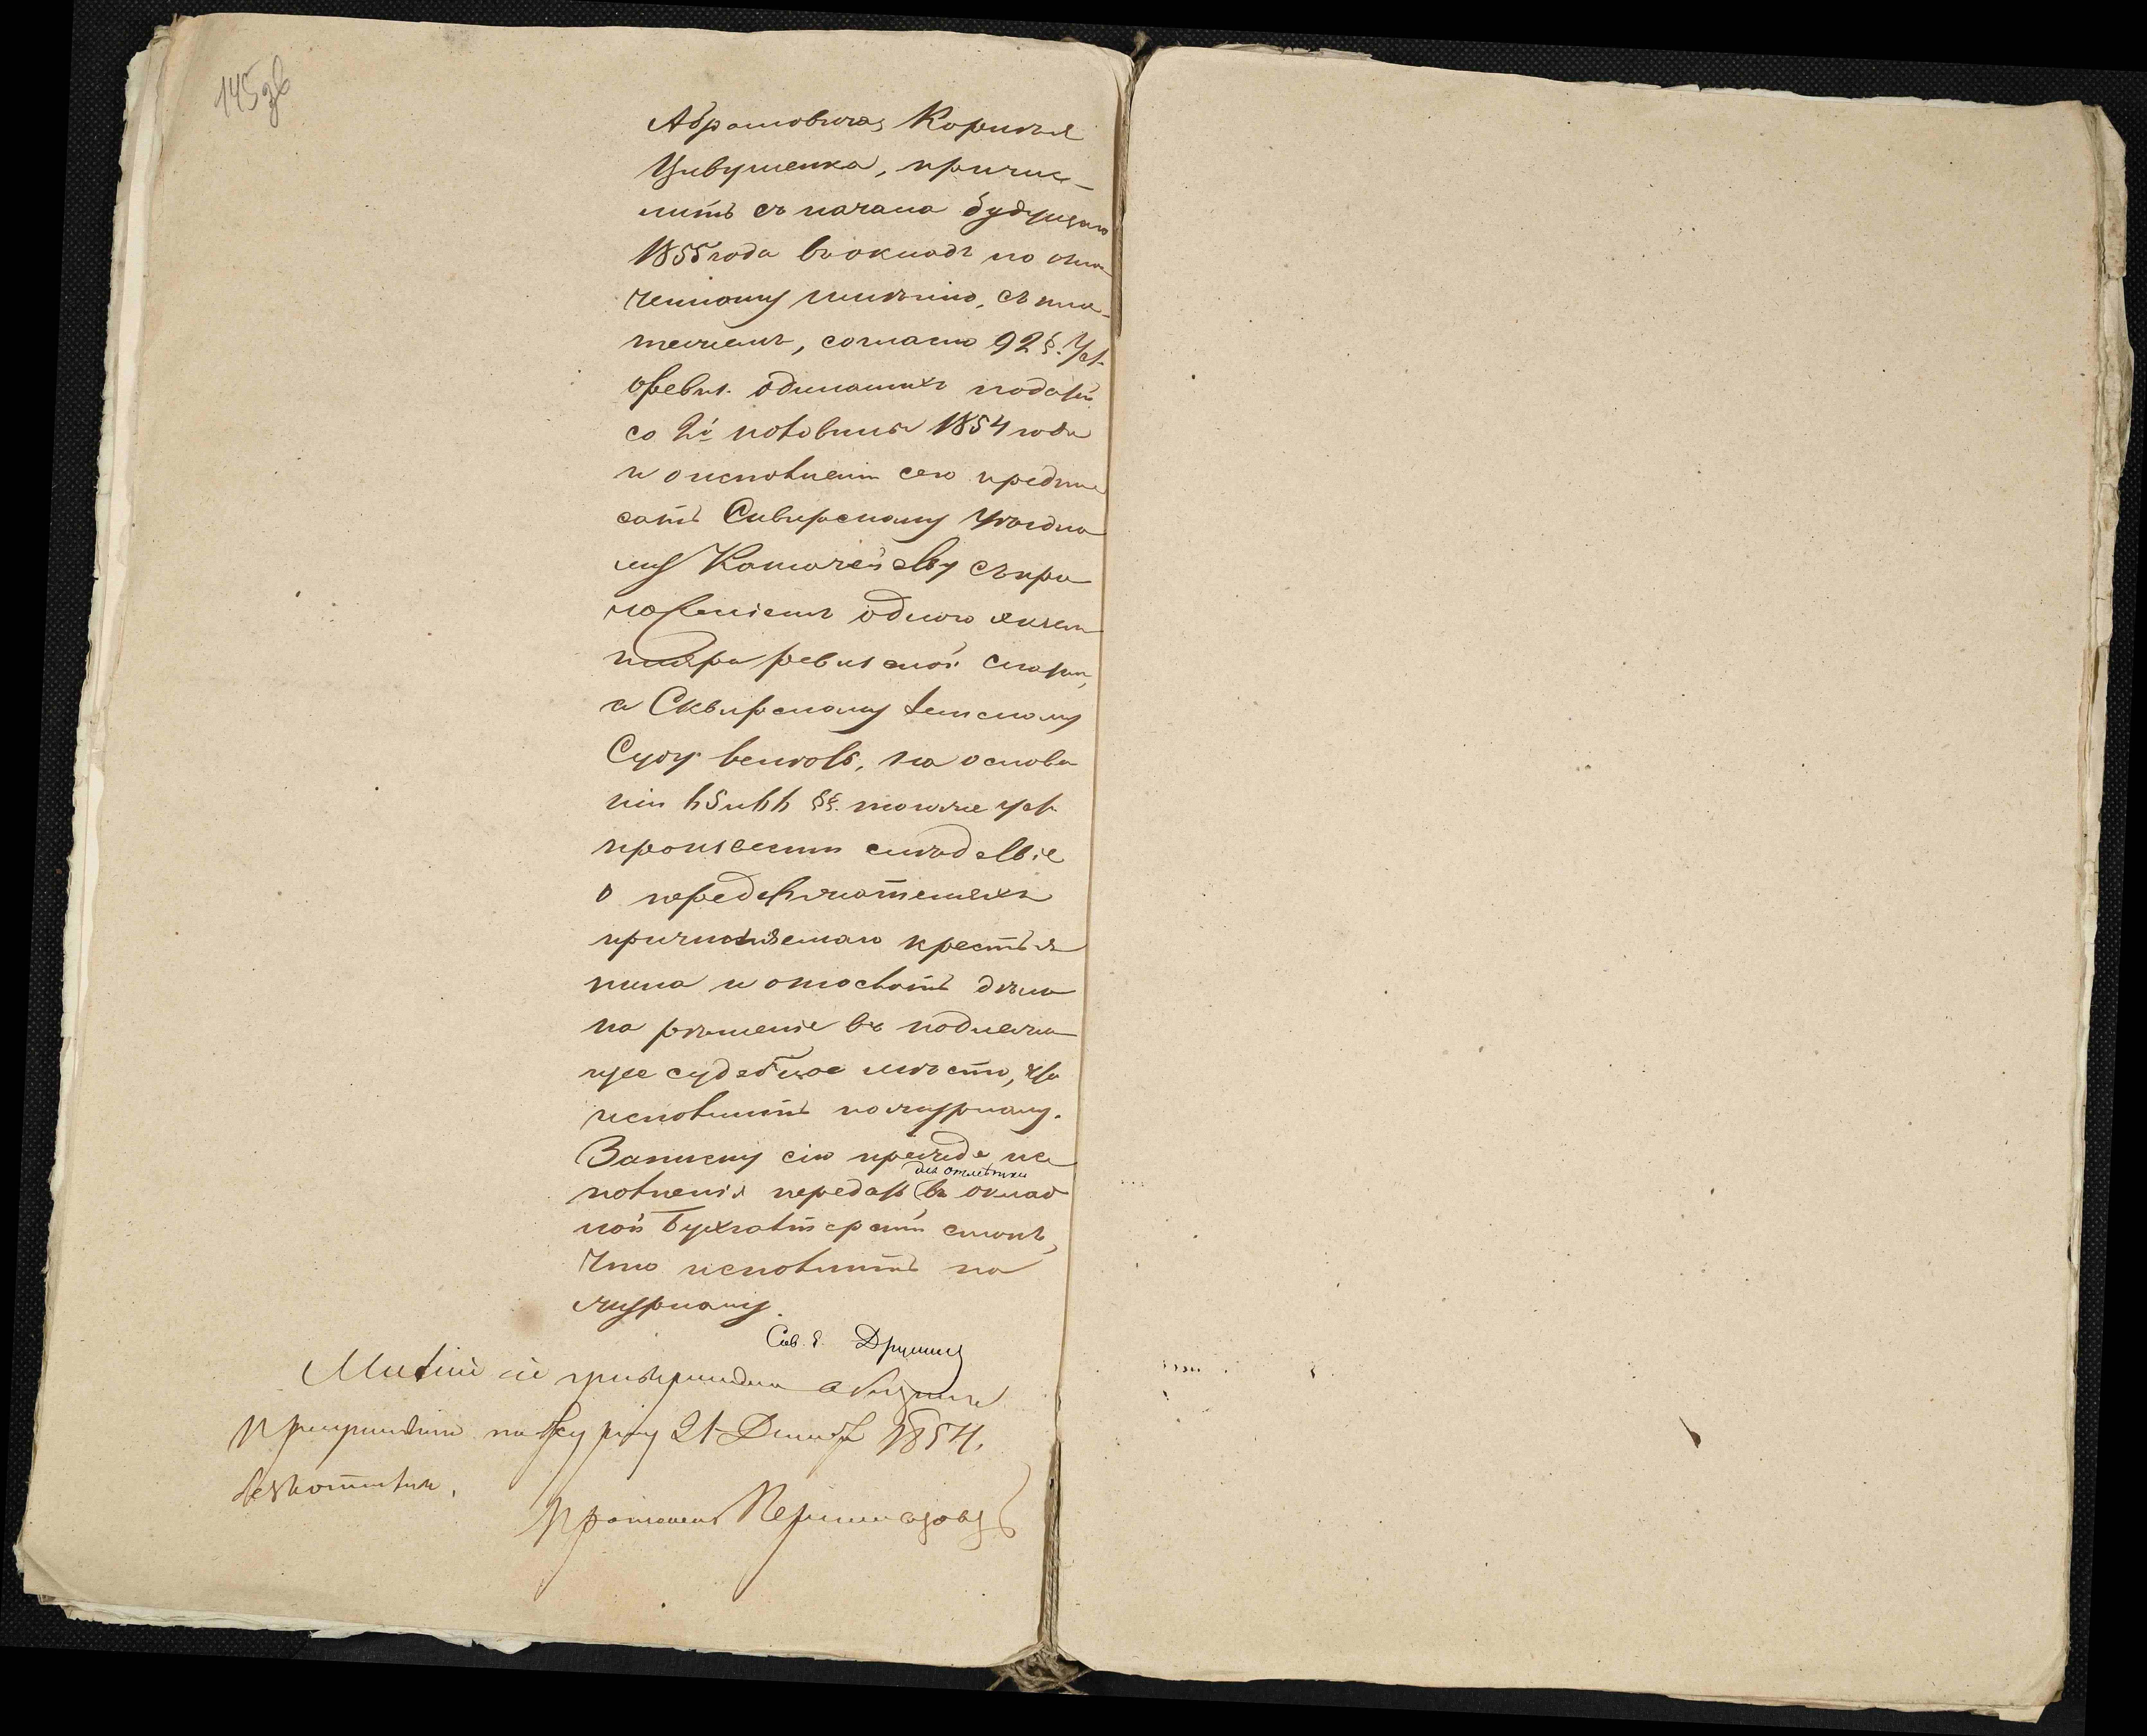 145 зв
Абрамовича, Корнѣя
Цивуменка, причис-
лить съ начала будущаго
1855 года въ окладъ по озна
ченному имѣнію, съ пла-
тежемъ, согласно 92 §. Уст.
о ревиз. одинакихъ податей
со 2й половины 1854 года
и о исполненіи сего предпи
сать Сквирскому Уѣздно
му Казначейству съ при
ложеніемъ одного экзем
пляра ревизской сказки,
а Сквирскому Земскому
Суду велѣть, на основа
ніи 65 и 66 §§. того же Уст.
произвести слѣдствіе
о передержателяхъ
причисляемаго крестья
нина и отослать дѣло
на рѣшеніе въ подлежа
щее судебное мѣсто, что
исполнить по журналу.
Записку сію прежде ис
полненія передать въ оклад
для отмѣтки
ной Бухгалтерскій столъ,
что исполнить по
журналу.
Сов. Е.
Мнѣніе сіе
по журналу 21 Декабр 1854.